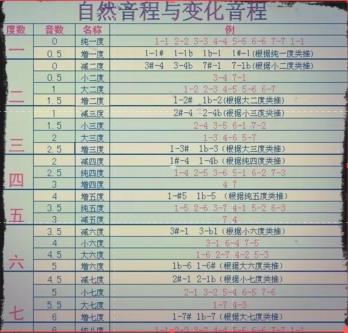 自然音程与变化音程
度数 音数 名称 例
一 0 纯一度 1-1 2-2 3-3 4-4 5-5 6-6 7-7 1-1
0.5 增一度 1-1# 1-1b 1b-1 1#-1(根据纯一度类推)
二 0 减二度 3#-4 3-4b 7#-1 7-1b(根据小二度类推)
0.5 小二度 3-4 7-1
1 大二度 1-2 2-3 4-5 5-6 6-7
1.5 增二度 1-2# 1b-2(根据大二度类推)
三 1 减三度 2#-4 2-4b(根据小三度类推)
1.5 小三度 2-4 3-5 6-1 7-2
2 大三度 1-3 4-6 5-7
2.5 增三度 1-3# 1b-3(根据大三度类推)
四 2 减四度 1#-4 1-4b(根据纯四度类推)
2.5 纯四度 1-4 2-5 3-6 5-1 6-2 7-3
3 增四度 4 7
五 4 增五度 1-#5 1b-5 (根据纯五度类推)
3.5 纯五度 1-5 2-6 3-7 4-1 5-2 6-3
3 减五度 7 4
六 3.5 减六度 3#-1 3-b1(根据小六度类推)
4 小六度 3-1 6-4 7-5
4.5 大六度 1-6 2-7 4-2 5-3
5 增六度 1b-6 1-6#(根据大六度类推)
七 4.5 减七度 2#-1 2-1b(根据小七度类推)
5 小七度 2-1 3-2 5-4 6-5 7-6
5.5 大七度 1-7 4-3
6 增七度 1-7# 1b-7(根据大七度类推)
6 纯八度